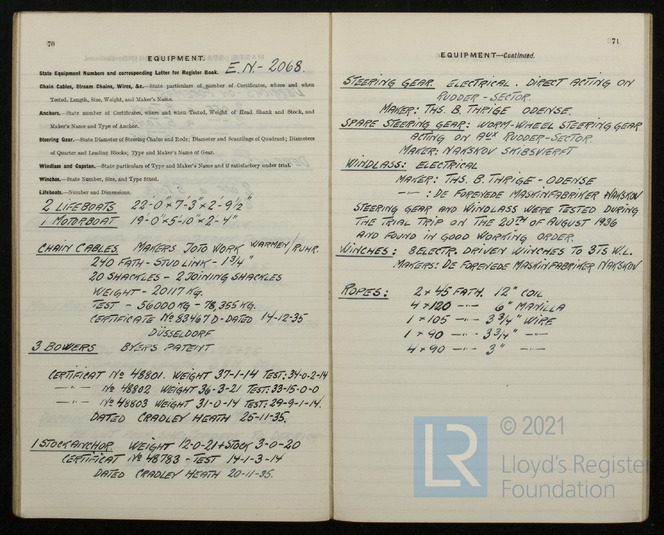 70
EQUIPMENT.
State Equipment Numbers and corresponding Letter for Register Book. E.N - 2068.
Chain Cables, Stream Chains, Wires, &c.—State particulars of number of Certificates, where and when
Tested, Length, Size, Weight, and Maker's Name.
Anchors.—State number of Certificates, where and when Tested, Weight of Head Shank and Stock, and
Maker's Name and Type of Anchor.
Steering Gear.—State Diameter of Steering Chains and Rods; Diameter and Scantlings of Quadrant; Diameters
of Quarter and Leading Blocks; Type and Maker's Name of Gear.
Windlass and Capstan.—State particulars of Type and Maker's Name and if satisfactory under trial.
Winches.—State Number, Size, and Type fitted.
Lifeboats.—Number and Dimensions.
2 LIFEBOATS 22-0" × 7-3" × 2-9½"
1 MOTORBOAT 19-0" × 5-10" × 2-4"
CHAIN CABLES. MAKERS JOTO WORK WARMEN/RUHR.
240 FATH - STUD LINK - 1¾"
20 SHACKLES - 2 JOINING SHACKLES
WEIGHT - 20117 KG.
TEST - 56000 KG - 78,355 KG.
CERTIFICATE No 83467 D - DATED 14-12-35
DÜSSELDORF
3 BOWERS BYERS PATENT
CERTIFICAT No 48801. WEIGHT 37-1-14 TEST: 34-0-2-14
—"— No 48802 WEIGHT 36-3-21 TEST: 33-15-0-0
—"— No 48803 WEIGHT 31-0-14 TEST: 29-9-1-14.
DATED CRADLEY HEATH 25-11-35.
1 STOCKANCHOR WEIGHT 12-0-21 + STOCK 3-0-20
CERTIFICAT No 48783 - TEST 14-1-3-14
DATED CRADLEY HEATH 20-11-35.
71
EQUIPMENT—Continued.
STEERING GEAR. ELECTRICAL. DIRECT ACTING ON
RUDDER-SECTOR.
MAKER: THS. B. THRIGE ODENSE.
SPARE STEERING GEAR: WORM-WHEEL STEERING GEAR
ACTING ON AUX RUDDER-SECTOR
MAKER: NAKSKOV SKIBSVÆRFT
WINDLASS: ELECTRICAL
MAKER: THS. B. THRIGE - ODENSE
—"—: DE FORENEDE MASKINFABRIKER NAKSKOV
STEERING GEAR AND WINDLASS WERE TESTED DURING
THE TRIAL TRIP ON THE 20TH OF AUGUST 1936
AND FOUND IN GOOD WORKING ORDER.
WINCHES: 8 ELECTR. DRIVEN WINCHES TO 3 TS W.L.
MAKERS: DE FORENEDE MASKINFABRIKER NAKSKOV
ROPES: 2 × 45 FATH. 12" COIL
4 × 120 —"— 6" MANILLA
1 × 105 —"— 3¾" WIRE
1 × 90 —"— 3¼" —"—
4 × 90 —"— 3" —"—
LR
© 2021
Lloyd's Register
Foundation